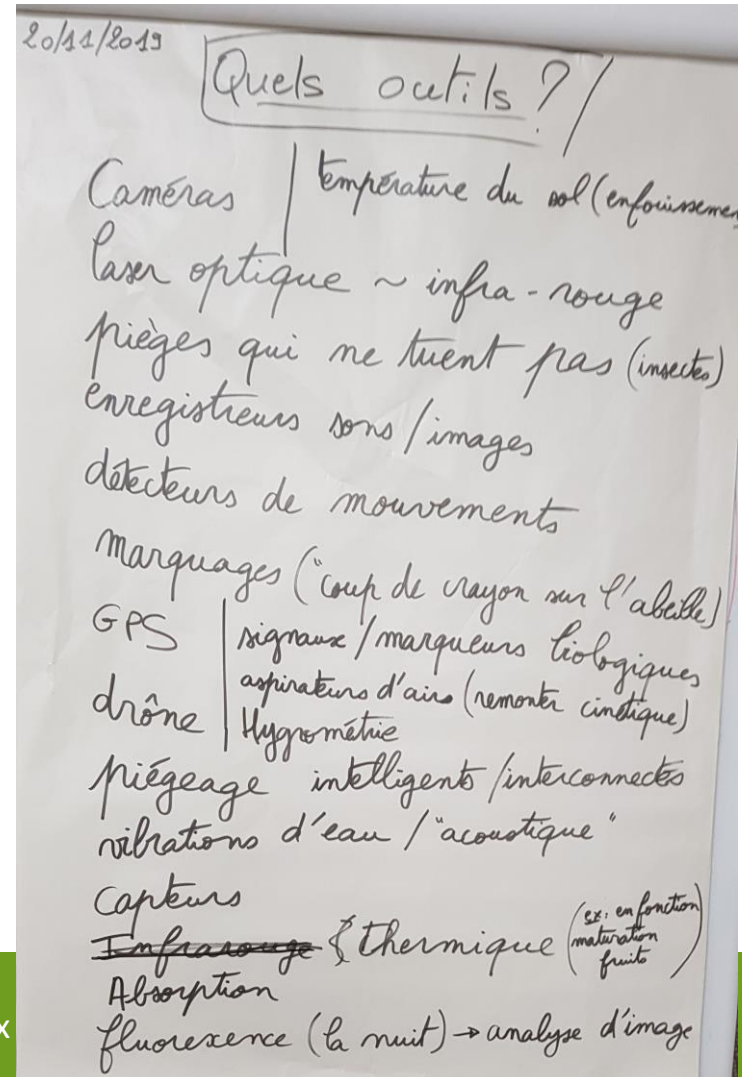 20/11/2019
Quels outils ?
Caméras | température du sol (enfouissemen
laser optique ~ infra-rouge
pièges qui ne tuent pas (insectes)
enregistreurs sons / images
détecteurs de mouvements
marquages ("coup de crayon sur l'abeille)
GPS | signaux / marqueurs biologiques
drône | aspirateurs d'airs (remonter cinétique)
Hygrométrie
piégeage intelligents / interconnectés
vibrations d'eau / "acoustique"
Capteurs
Infrarouge { thermique (ex: en fonction maturation fruits)
Absorption
fluorexence (la nuit) → analyse d'image
x